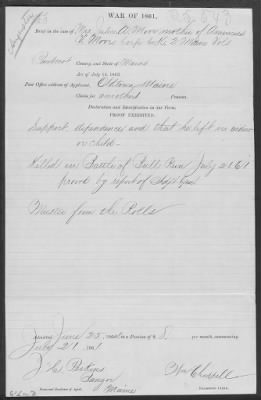 WAR OF 1861.
Brief in the case of Mrs Julia A Moor mother of Americus
V. Moore Corp Co K 2" Maine Vols
Penobscot County, and State of Maine
Act of July 14, 1862.
Post Office address of Applicant, Maine
Claim for a mother's Pension.
Declaration and Identification in due Form.
PROOF EXHIBITED.
Support, dependence, and that he left no widow
or child
Killed in Battle of Bull Run July 21. 61
proved by report of
Muster from the Rolls
June 23, Pension of 8. per month, commencing
July 21 1861
Perkins
Bangor
Maine
Examining Clerk.